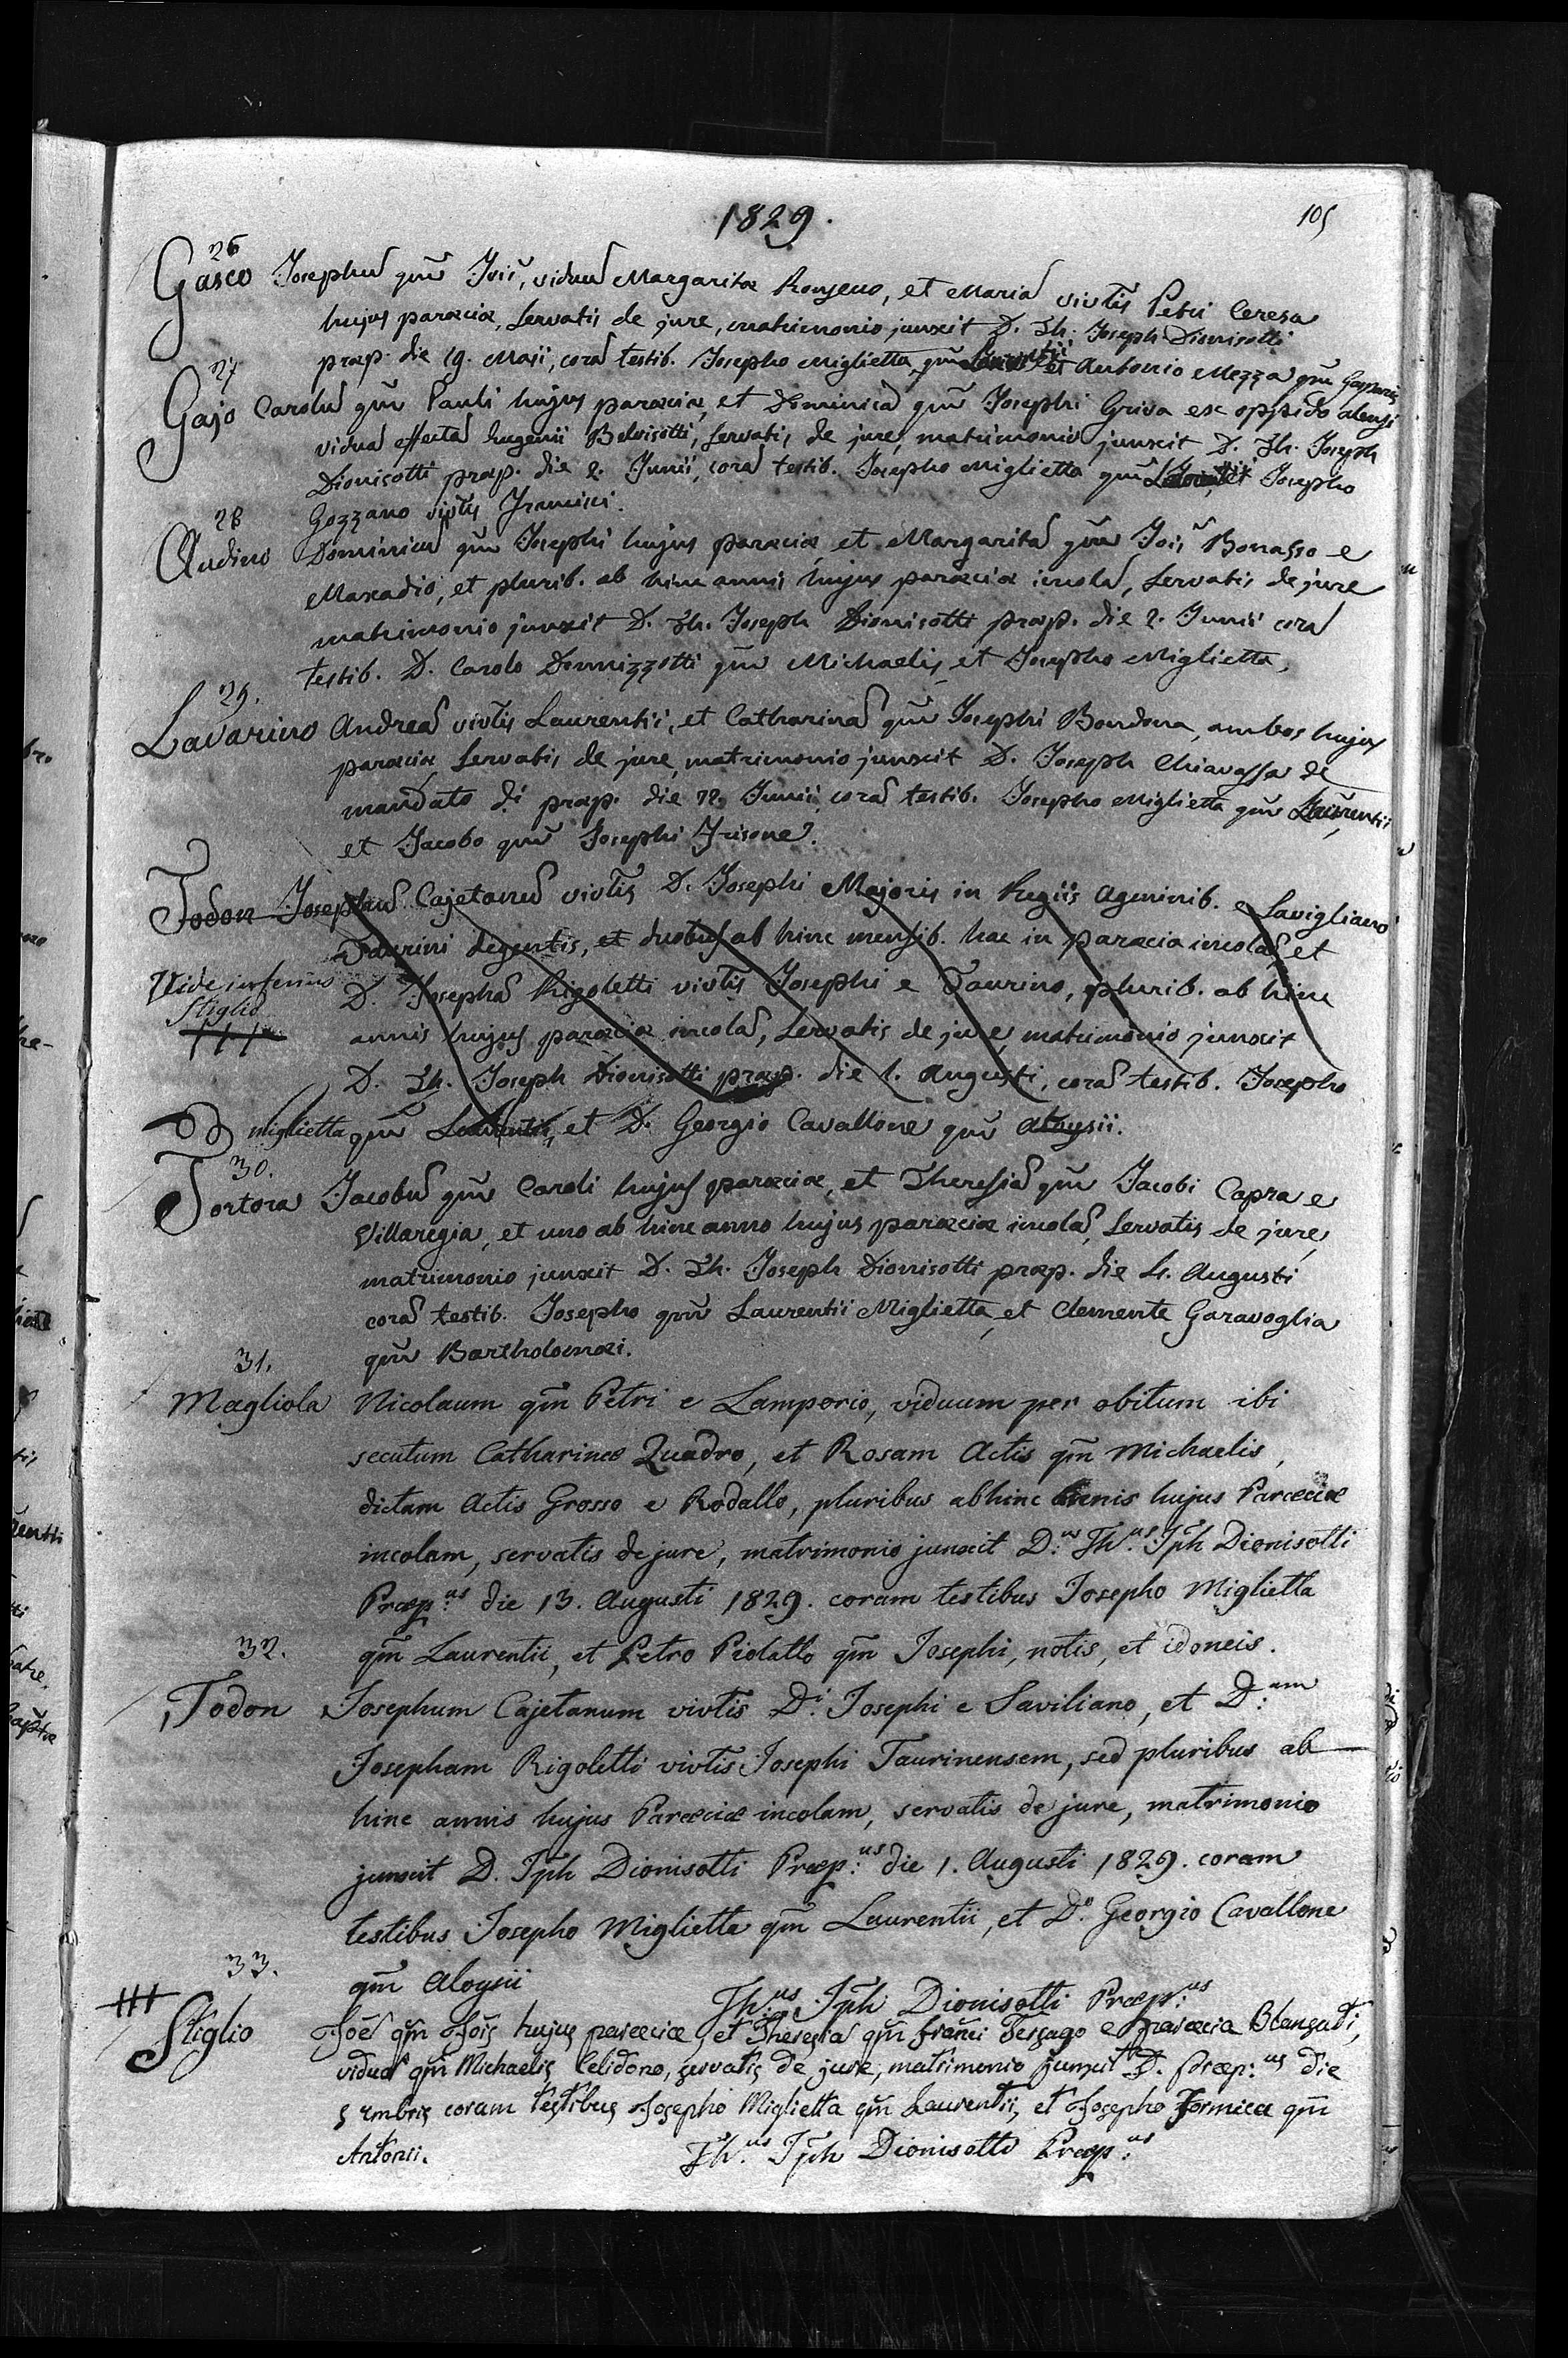 1829.
105
26
Gasco Josephū qm̄ Jois̄, viduū Margaritæ Ronzeno, et Mariā viv̄tis Petri Ceresa
hujus paræciæ, servatis de jure, matrimonio junxit D. Th. Joseph Dionisotti
præp. die 19. Maji, corā testib. Josepho Miglietta qm̄ Laurentii et Antonio Mezza qm̄ Gasparis
27
Gajo Carolū qm̄ Pauli hujus paræciæ, et Dominicā qm̄ Josephi Griva ex oppido
viduā effectā Eugenii Belvisotti, servatis de jure, matrimonio junxit D. Th. Joseph
Dionisotti præp. die 2. Junii, corā testib. Josepho Miglietta qm̄ et Josepho
Gozzano viv̄tis Francisci.
28
Audino Dominicū qm̄ Josephi hujus paræciæ, et Margaritā qm̄ Jois̄ Bonasso e
Maxadio, et plurib. ab hinc annis hujus paræciæ incolā, servatis de jure
matrimonio junxit D. Th. Joseph Dionisotti præp. die 2. Junii corā
testib. D. Carolo Dennizzotti qm̄ Michaelis, et Josepho Miglietta,
29.
Lavarino Andreā viv̄tis Laurentii, et Catharinā qm̄ Josephi Bondona, ambos hujus
paræciæ, servatis de jure, matrimonio junxit D. Joseph Chiavassa de
mandato di præp. die 12 Junii, corā testib. Josepho Miglietta qm̄ Laurentii
et Jacobo qm̄ Josephi Frisone.
Todon Josephū Cajetanū viv̄tis D. Josephi Majoris in Regiis Agminib. e Savigliano
Taurini degentis, et duobus ab hinc mensib. hac in paræcia incolā, et
Vide inferius
D. Josephā Rigoletti viv̄tis Josephi e Taurino, plurib. ab hinc
Stiglio
annis hujus paræciæ incolā, servatis de jure, matrimonio junxit
D. Th. Joseph Dionisotti præp. die 1. Augusti, corā testib. Josepho
Miglietta qm̄ Laurentii, et D. Georgio Cavallone qm̄ Aloysii.
30.
Tortora Jacobū qm̄ Caroli hujus paræciæ, et Theresiā qm̄ Jacobi Capra e
Villaregia, et uno ab hinc anno hujus paræciæ incolā, servatis de jure,
matrimonio junxit D. Th. Joseph Dionisotti præp. die 4. Augusti
corā testib. Josepho qm̄ Laurentii Miglietta, et Clemente Garavoglia
qm̄ Bartholomæi.
31.
Magliola Nicolaum qm̄ Petri e Lamporio, viduum per obitum ibi
secutum Catharinæ Quadro, et Rosam Actis qm̄ Michaelis,
dictam Actis Grosso e Rodallo, pluribus abhinc annis hujus Paræciæ
incolam, servatis de jure, matrimonio junxit D.us Th.us Jph Dionisotti
Præp.us die 13. Augusti 1829. coram testibus Josepho Miglietta
qm̄ Laurentii, et Petro Piolatto qm̄ Josephi, notis, et idoneis.
32.
Todon Josephum Cajetanum viv̄tis D.i Josephi e Saviliano, et D.am
Josepham Rigoletti viv̄tis Josephi Taurinensem, sed pluribus ab
hinc annis hujus Paræciæ incolam, servatis de jure, matrimonio
junxit D. Jph Dionisotti Præp.us die 1. Augusti 1829. coram
testibus Josepho Miglietta qm̄ Laurentii, et D.o Georgio Cavallone
qm̄ Aloysii
Th.us Jph Dionisotti Præp.us
33.
Stiglio Joēm qm̄ Jois̄ hujus paræciæ, et Theresiā qm̄ Franci Terzago e paræcia Blanzati,
viduā qm̄ Michaelis Celidono, servatis de jure, matrimonio junxit D. Præp.us die
5 Xmbris coram testibus Josepho Miglietta qm̄ Laurentii, et Josepho Formica qm̄
Antonii.
Th.us Jph Dionisotti Præp.us